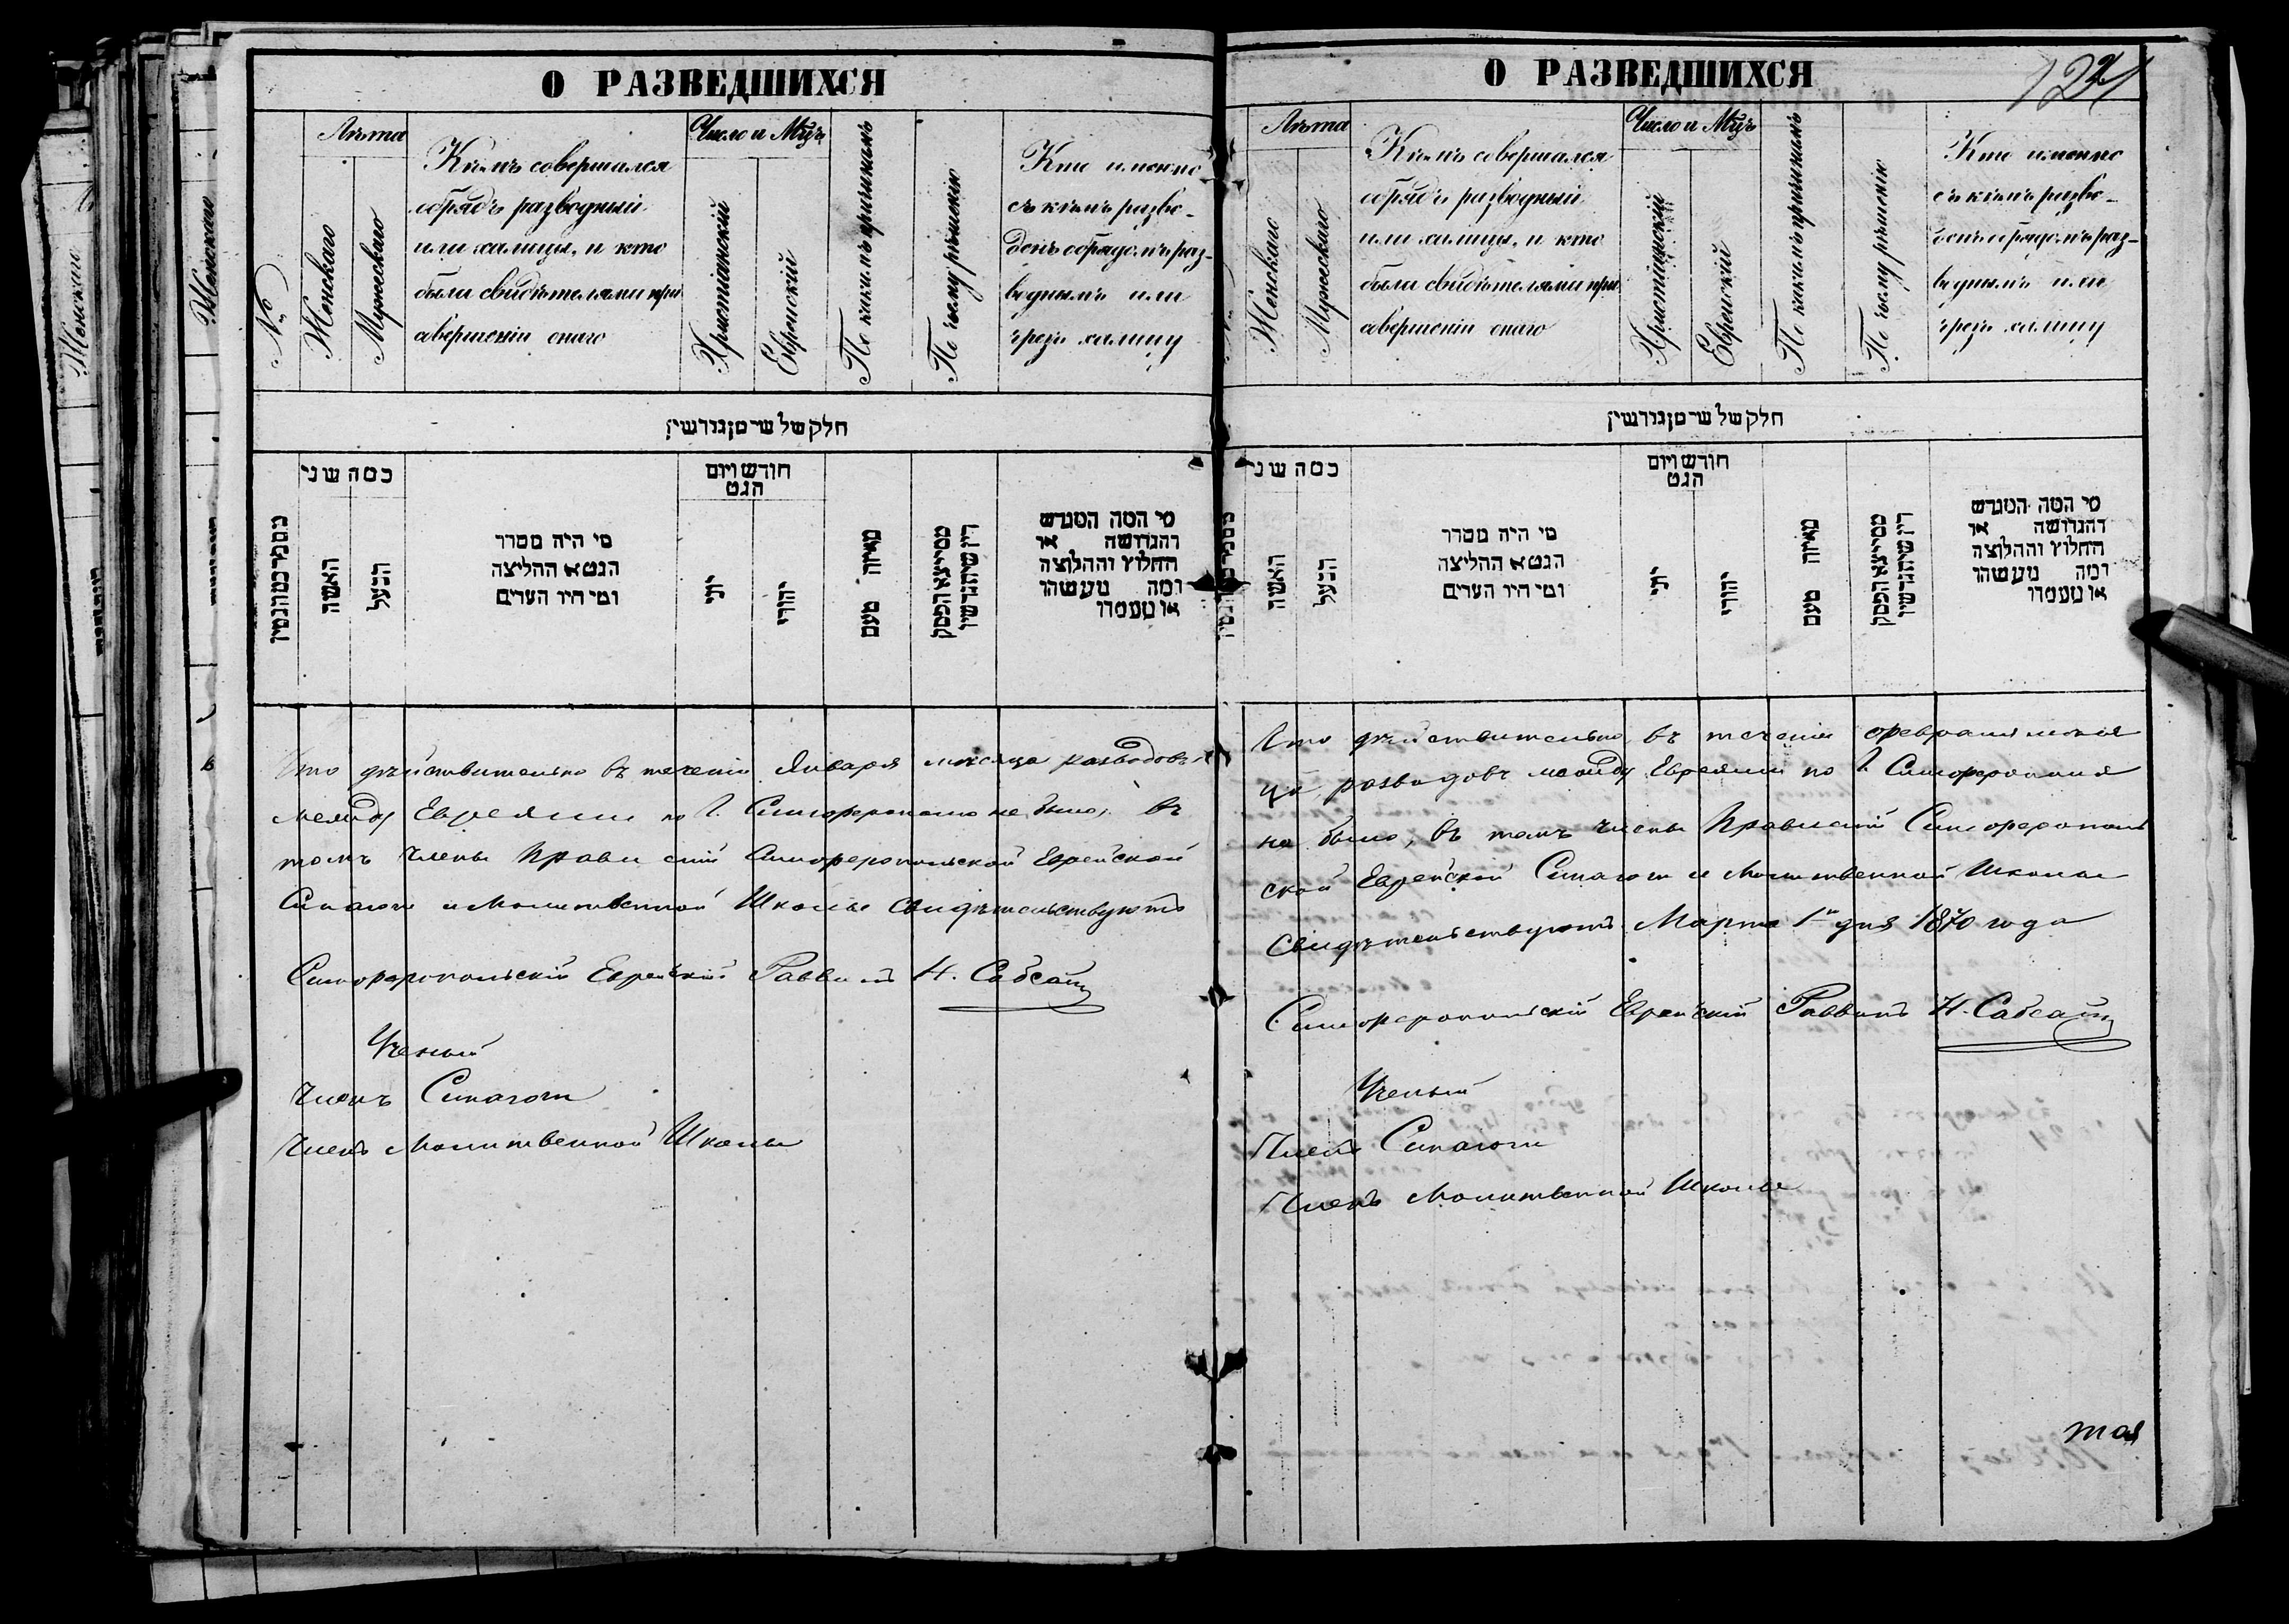 О РАЗВЕДШИХСЯ
№
Лѣта
Женскаго
Мужескаго
Кѣмъ совершался
обрядъ разводный
или халицы, и кто
были свидѣтелями при
совершеніи онаго
Число и Мѣцъ
Христіанскій
Еврейскій
По какимъ причинамъ
По чьему рѣшенію
Кто именно
съ кѣмъ разве-
денъ обрядомъ раз-
воднымъ или
чрезъ халицу
חלק של שרסן גורשין
כמה שני
האשה
הבעל
מי היה מסדר
הגט א החליצה
ומי היו העדים
חודש ויום
הגט
יוני
יהודי
מאיזה טעם
מי המה המגרש
והגרושה או
החלוץ והחלוצה
ומה מעשהו
או מעמדו
Что дѣйствительно въ теченіи Января мѣсяца разводовъ
между Евреями по Г. Симферополю не было, въ
томъ члены Правленій Симферопольской Еврейской
Синагоги и Молитвенной Школы свидѣтельствуютъ
Симферопольскій Еврейскій Раввинъ Н. Сабсай
Ученый
Членъ Синагоги
Членъ Молитвенной Школы
О РАЗВЕДШИХСЯ
124
Лѣта
Женскаго
Мужескаго
Кѣмъ совершался
обрядъ разводный
или халицы, и кто
были свидѣтелями при
совершеніи онаго
Число и Мѣцъ
Христіанскій
Еврейскій
По какимъ причинамъ
По чьему рѣшенію
Кто именно
съ кѣмъ разве-
денъ обрядомъ раз-
воднымъ или
чрезъ халицу
חלק של שרסן גורשין
כמה שני
האשה
הבעל
מי היה מסדר
הגט א החליצה
ומי היו העדים
חודש ויום
הגט
יוני
יהודי
מאיזה טעם
מי המה המגרש
והגרושה או
החלוץ והחלוצה
ומה מעשהו
או מעמדו
Что дѣйствительно въ теченіи февраля мѣся
ца разводовъ между Евреями по Г. Симферополя
не было, въ томъ члены Правленій Симферополь
ской Еврейской Синагоги и Молитвенной Школы
Свидѣтельствуютъ Марта 1го дня 1870 года
Симферопольскій Еврейскій Раввинъ Н. Сабсай
Ученый
Членъ Синагоги
Членъ Молитвенной Школы